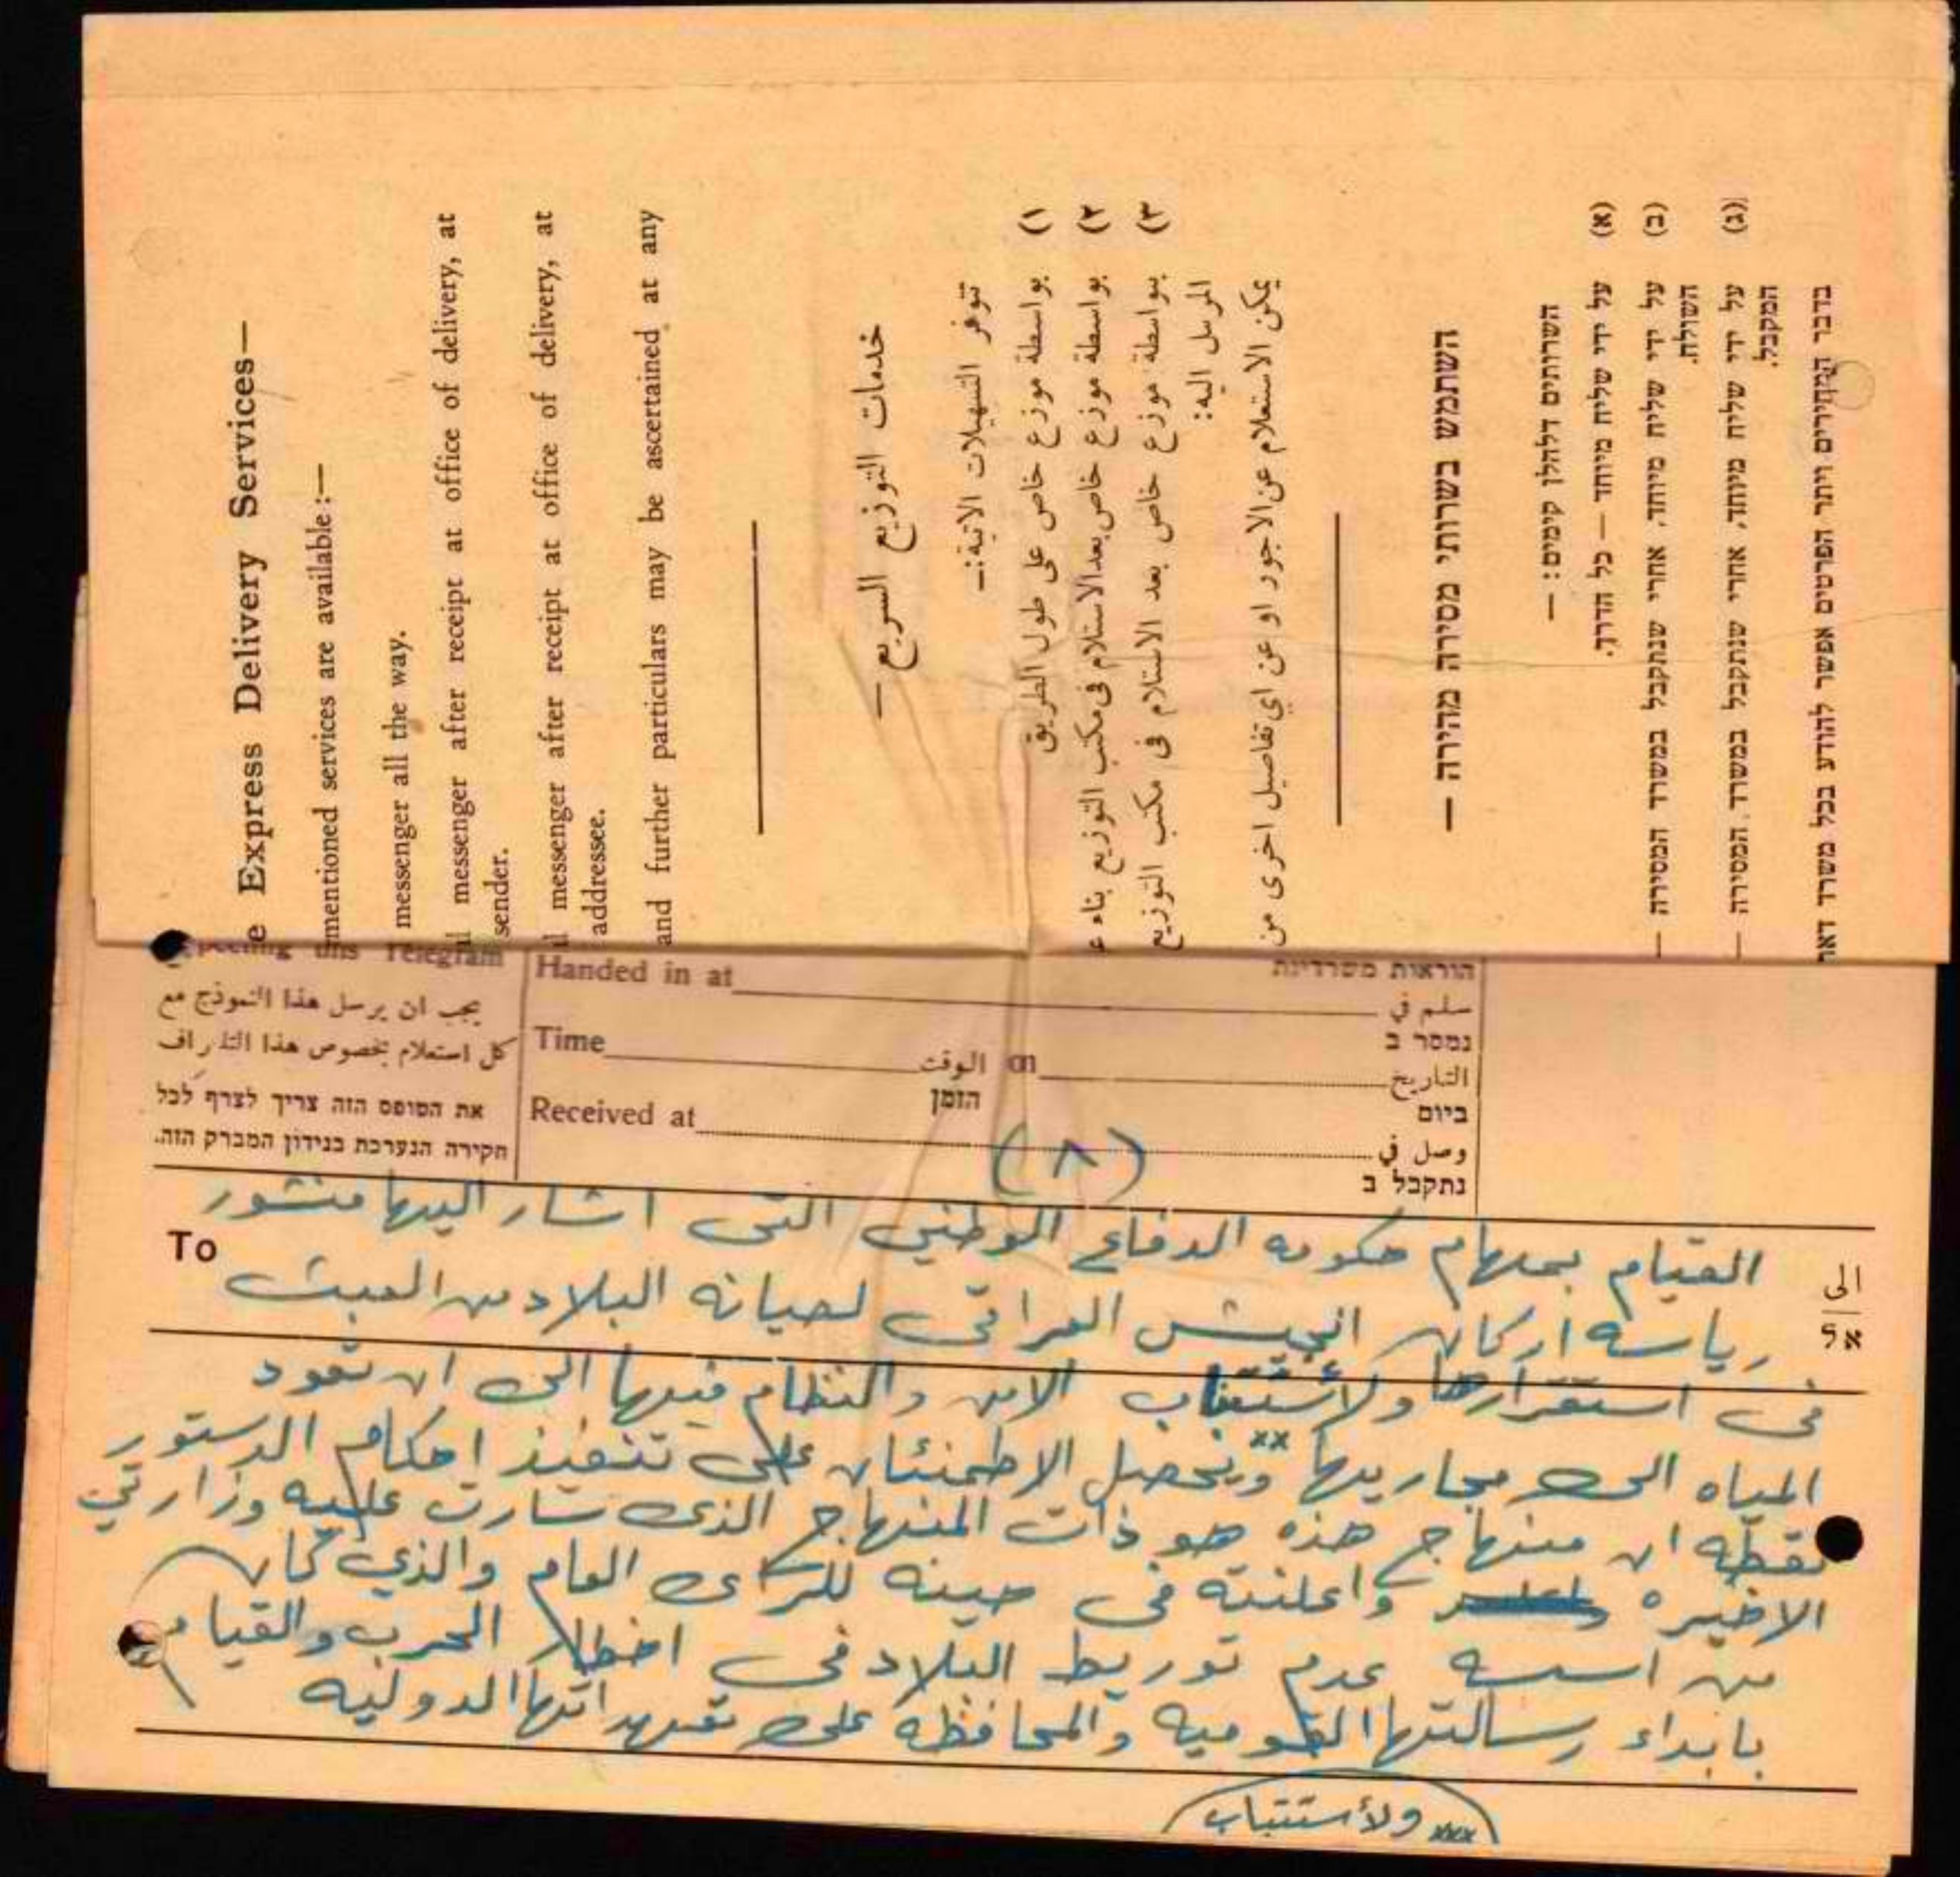 e Express Delivery Services—
mentioned services are available:—
messenger all the way.
l messenger after receipt at office of delivery, at
sender.
l messenger after receipt at office of delivery, at
addressee.
and further particulars may be ascertained at any
خدمات التوزيع السريع —
تتوفر التسهيلات الاتية:—
١) بواسطة موزع خاص على طول الطريق
٢) بواسطة موزع خاص بعد الاستلام فى مكتب التوزيع بناء ع
٣) بواسطة موزع خاص بعد الاستلام فى مكتب التوزيع
المرسل اليه:
يمكن الاستعلام عن الاجور او عن اي تفاصيل اخرى من
השתמש בשרותי מסירה מהירה —
השרותים דלהלן קימים: —
(א) על ידי שליח מיוחד — כל הדרך.
(ב) על ידי שליח מיוחד, אחרי שנתקבל במשרד המסירה —
השולח.
(ג) על ידי שליח מיוחד, אחרי שנתקבל במשרד המסירה —
המקבל.
בדבר המחירים ויתר הפרטים אפשר להודע בכל משרד דאר
this Telegram
يجب ان يرسل هذا النموذج مع
كل استعلام بخصوص هذا التلغراف
את הטופס הזה צריך לצרף לכל
חקירה הנערכת בנידון המברק הזה.
Handed in at
הוראות משרדיות
سلم في
נמסר ב
Time الوقت on التاريخ
הזמן ביום
Received at وصل في
נתקבל ב
(٨)
To الى
אל
القيام بمهام حكومة الدفاع الوطني التى اشار اليها منشور
رياسة اركان الجيش العراقى لصيانة البلاد من العبث
فى استقرارها ولأستتباب الامن والنظام فيها الى ان تعود
المياه الى مجاريها xx ويحصل الاطمئنان على تنفيذ احكام الدستور
نقطة ان منهاج هذه هو ذات المنهاج الذى سارت عليه وزارتي
الاخيره واعلنته فى حينه للرأى العام والذي كان
من اسسه عدم توريط البلاد فى اخطار الحرب والقيام
بابداء رسالتها القومية والمحافظة على تعهداتها الدولية
xxx ولأستتباب